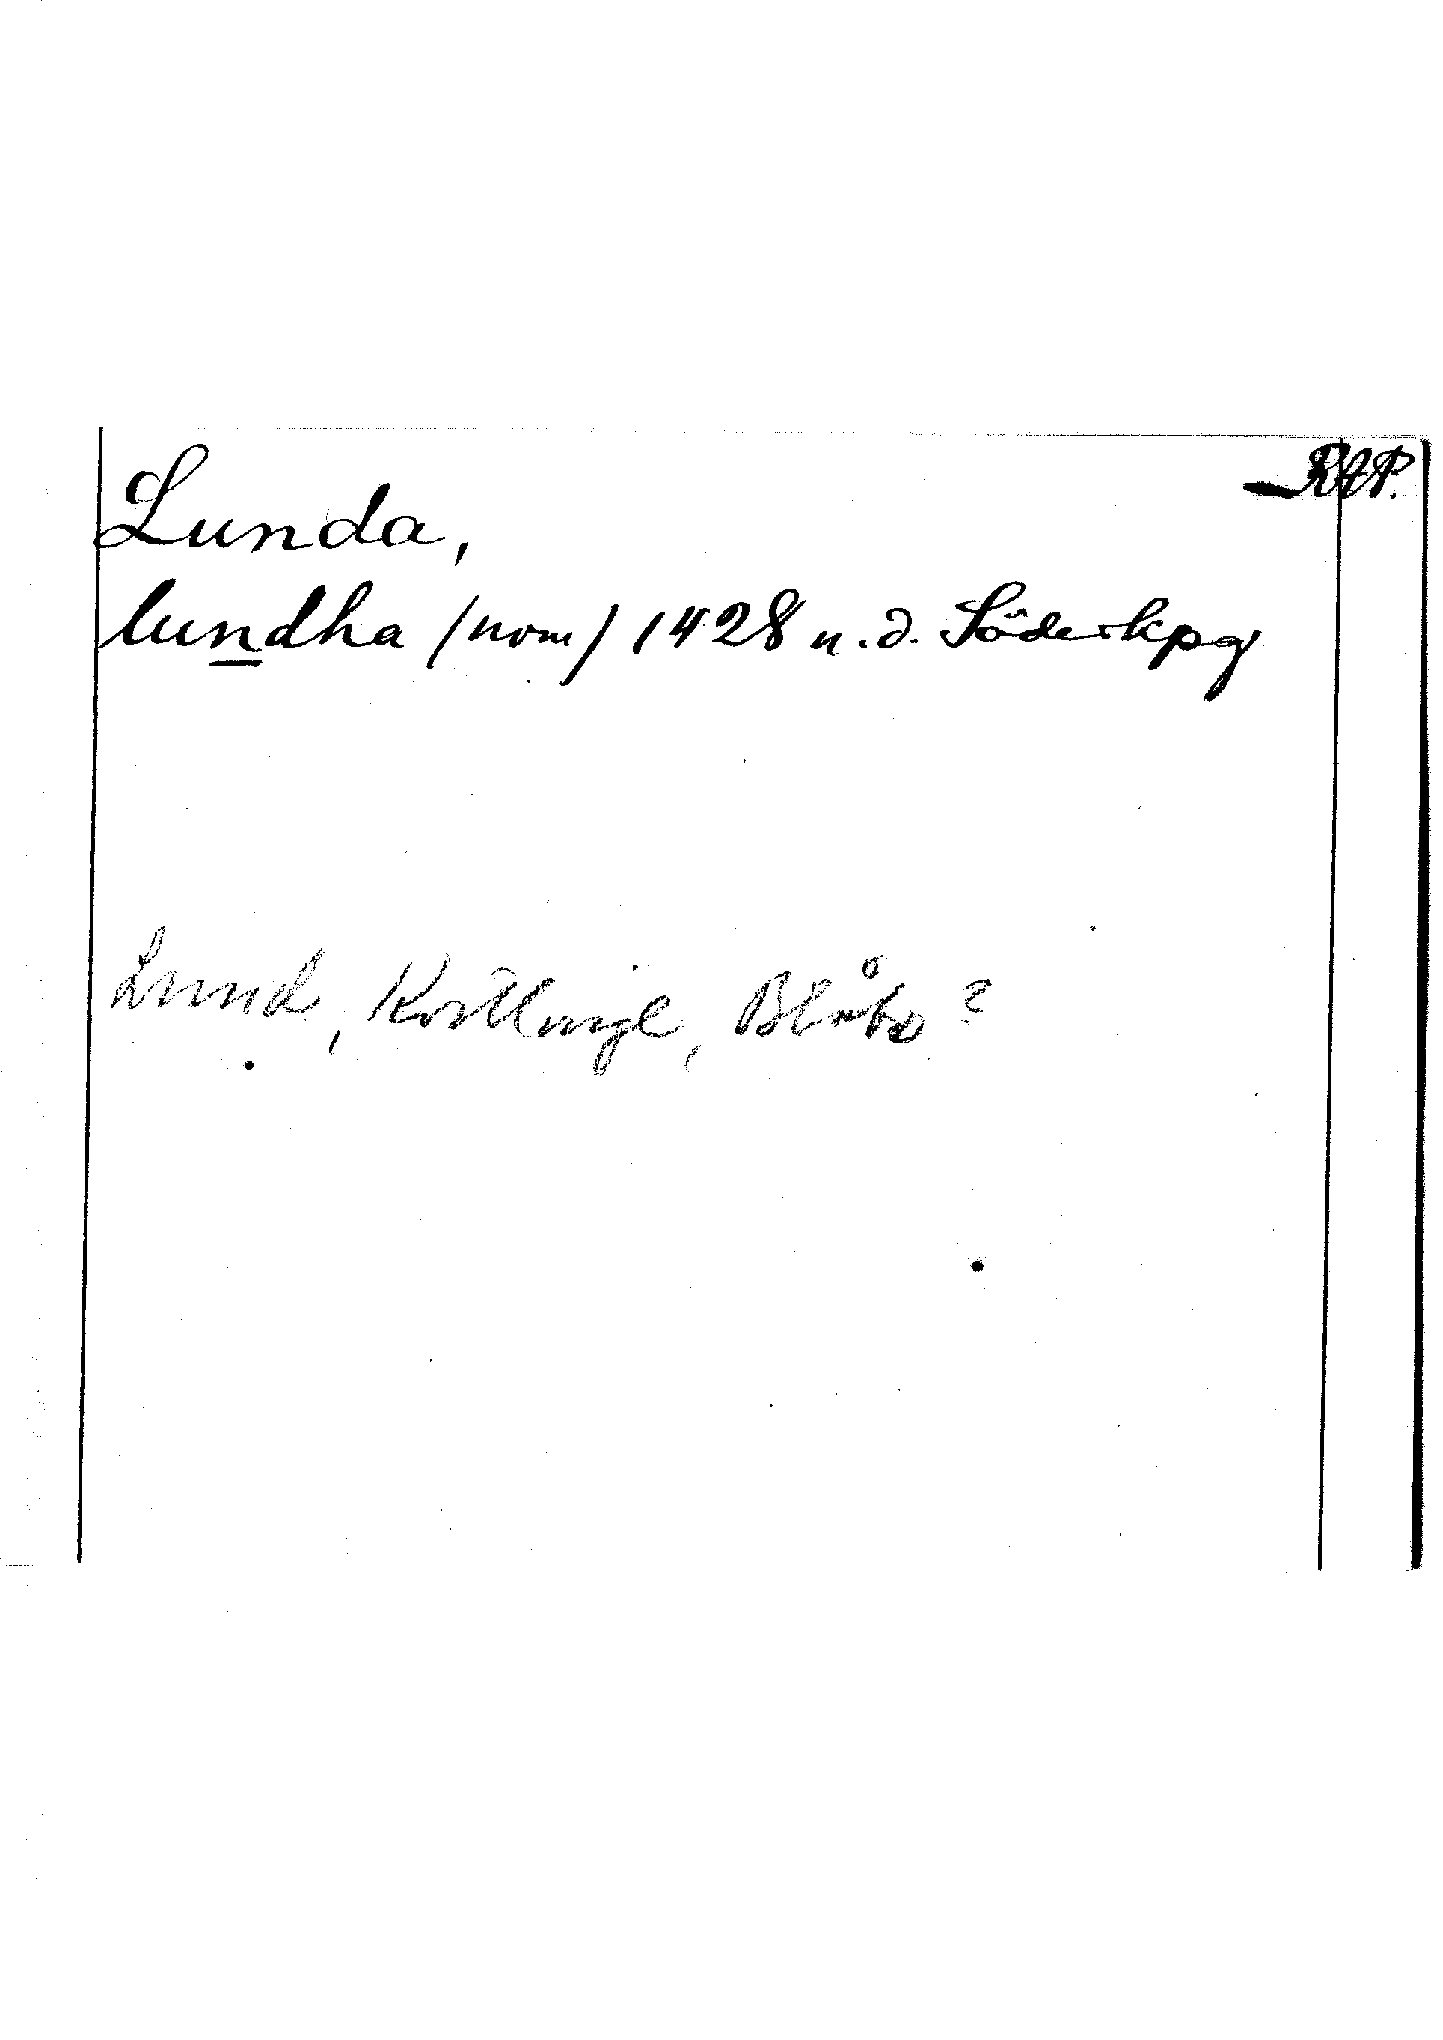 Lunda, RAP.
lundha (nom) 1428 u. d. Söderkpg
Lund, Kvillinge, Blåbo?